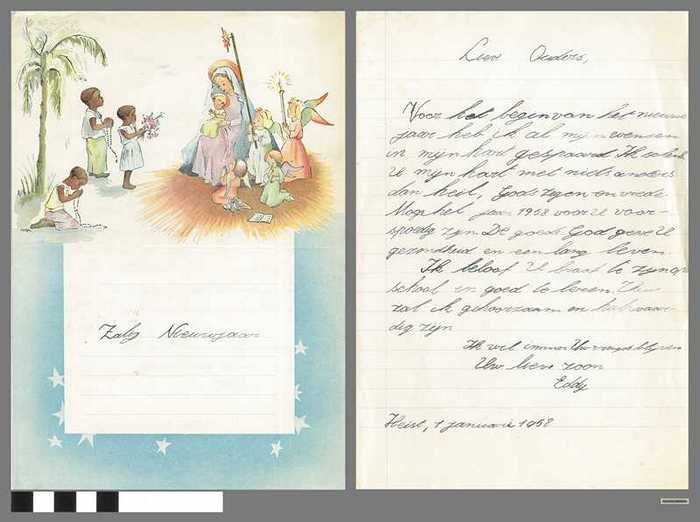 Zalig Nieuwjaar
Lieve Ouders,
Voor het begin van het nieuwe
jaar heb ik al mijn wensen
in mijn hart gespaard Ik
U mijn hart met niets anders
dan heil, Gods zegen en vrede.
Moge het jaar 1958 voor U voor-
spoedig zijn. De goede God geve U
gezondheid en een lang leven.
Ik beloof U braaf te zijn op
school en goed te leren.
zal ik gehoorzaam en
dig zijn
Ik wil immer Uw
Uw lieve zoon
Eddy
Heist, 1 januarie 1958